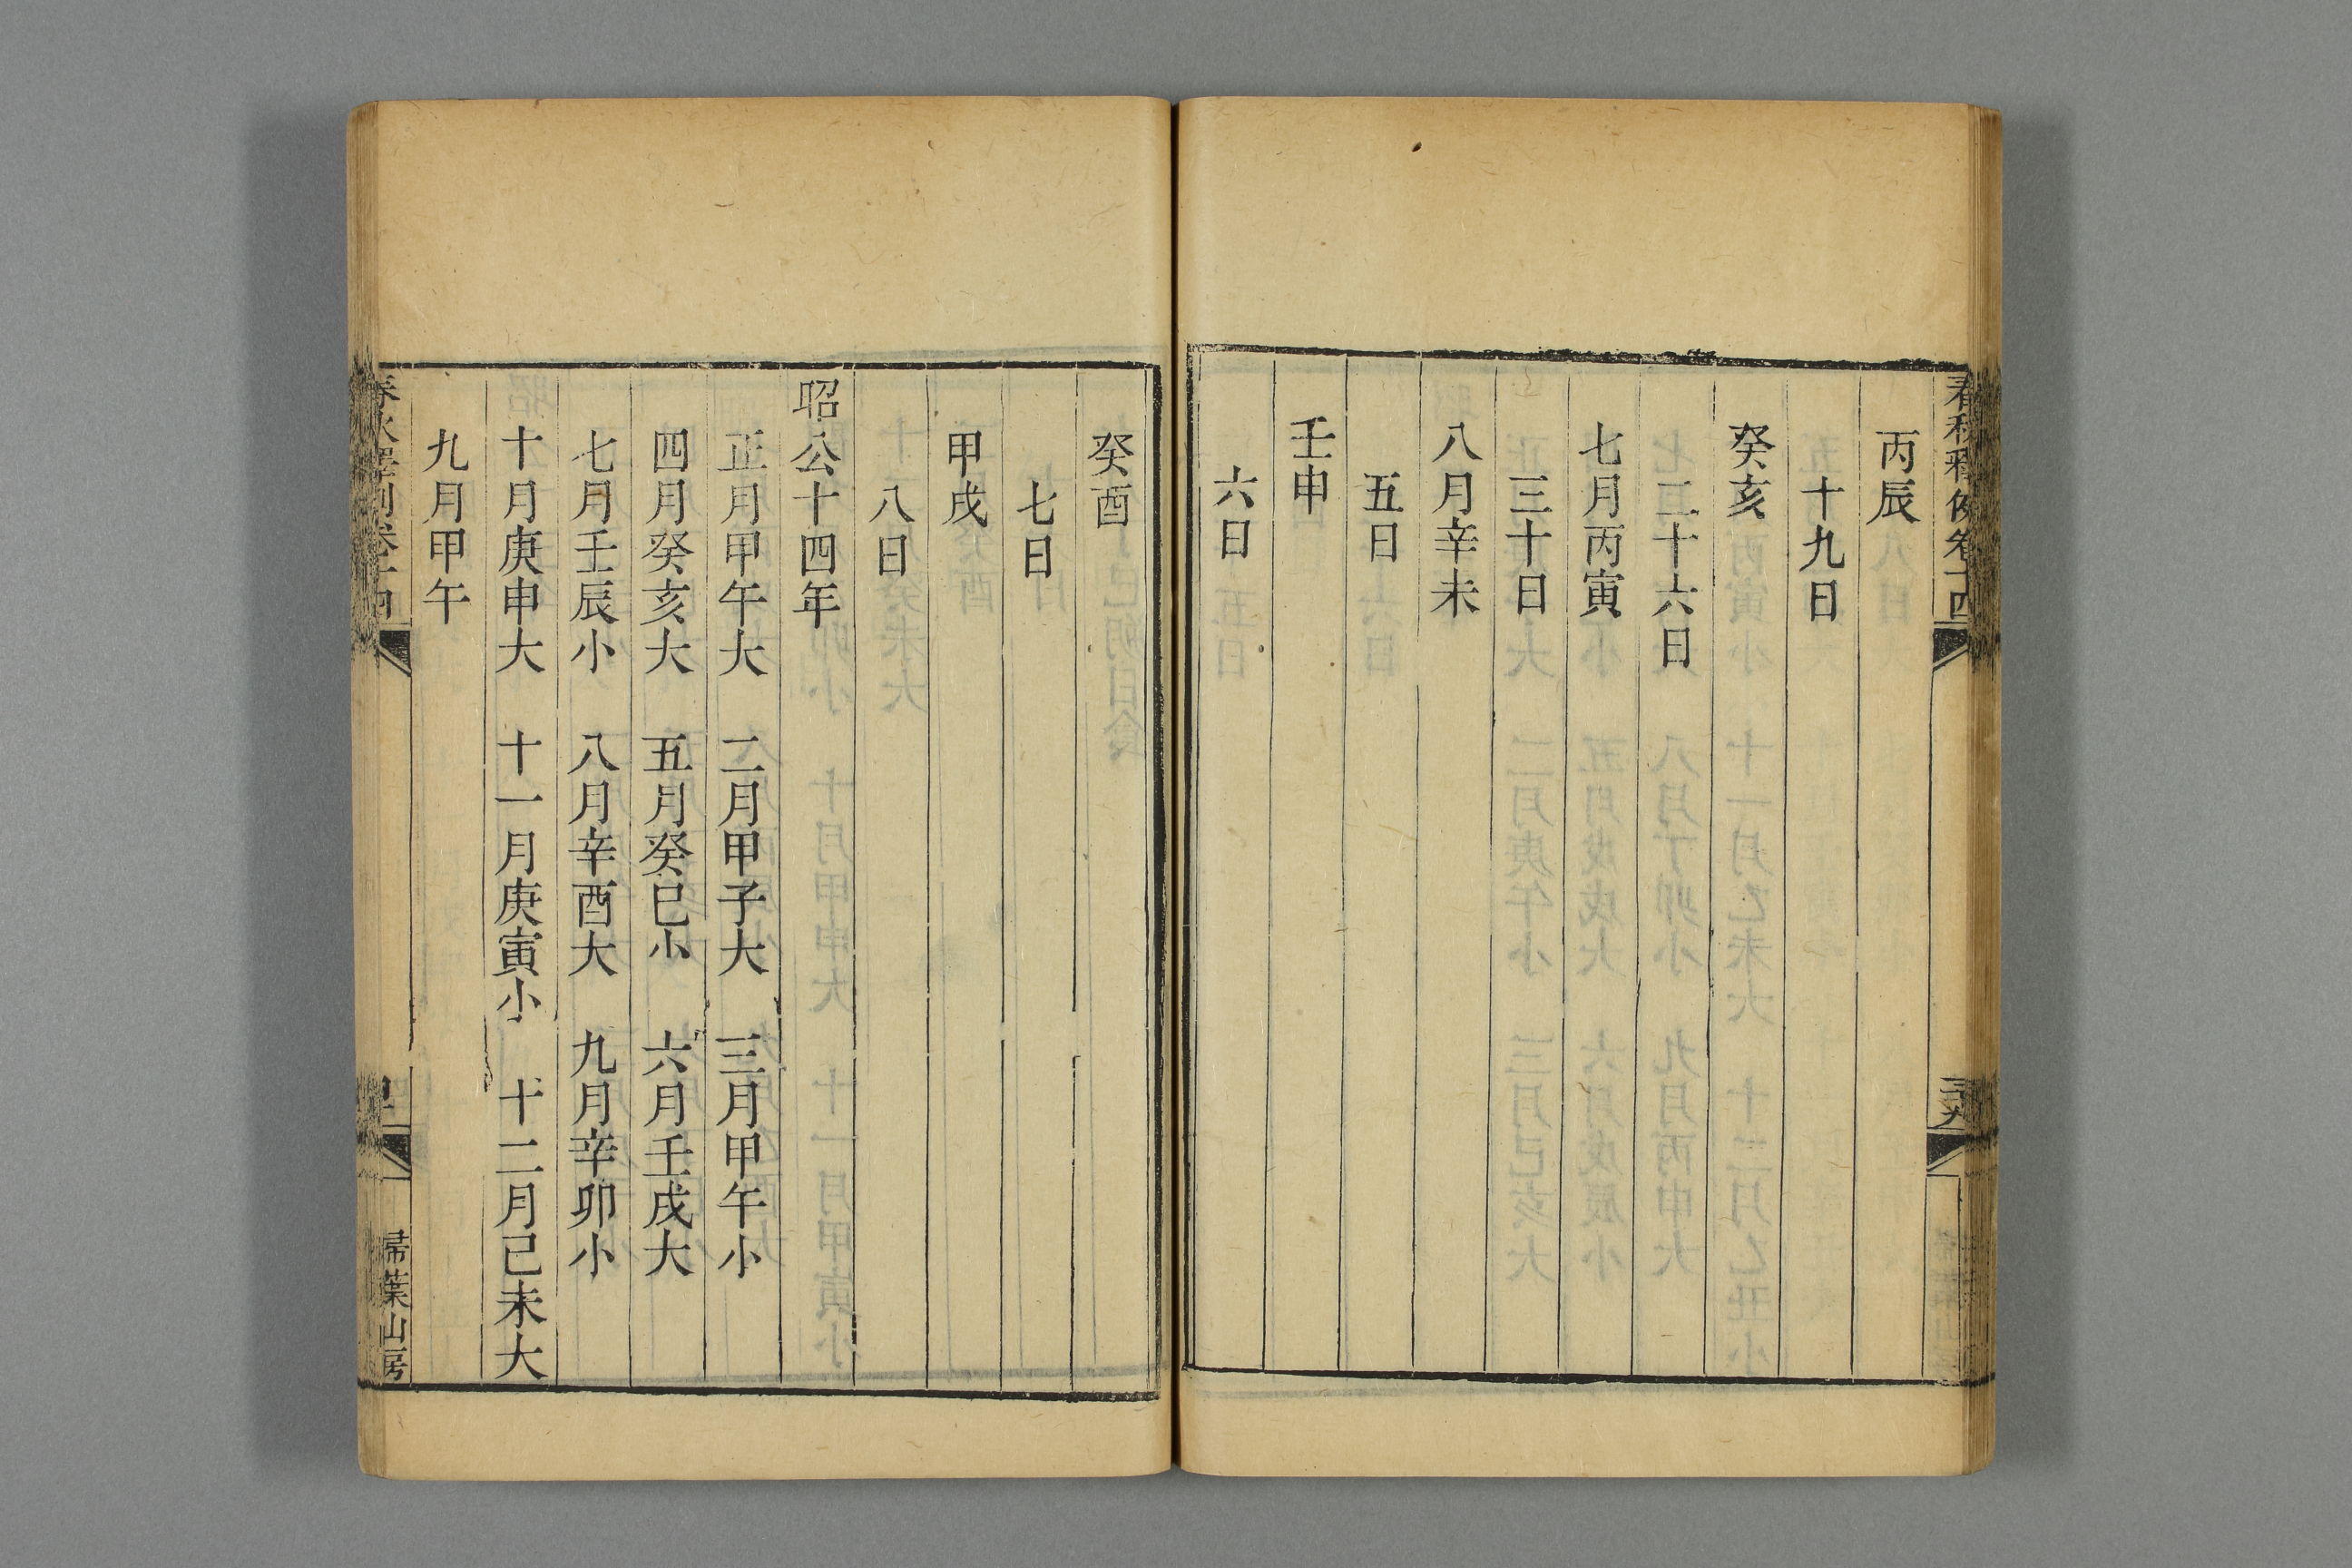 春秋釋例卷十四
丙辰
十九日
癸亥
二十六日
七月丙寅
三十日
八月辛未
五日
壬申
六日
癸酉
七日
甲戌
八日
昭公十四年
正月甲午大　二月甲子大　三月甲午小
四月癸亥大　五月癸巳小　六月壬戌大
七月壬辰小　八月辛酉大　九月辛卯小
十月庚申大　十一月庚寅小　十二月己未大
九月甲午
春秋釋例卷十四
掃葉山房